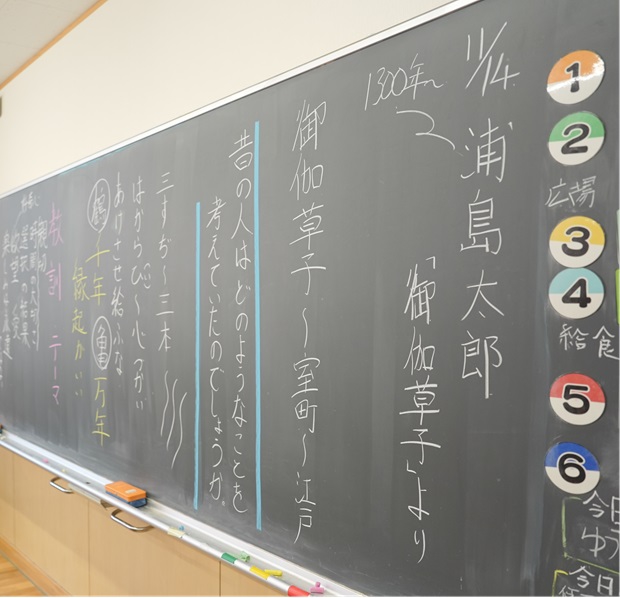 1
2
広場
3
4
給食
5
6
今日
ゆう
今日
11/14
浦島太郎
「御伽草子」より
1300年~
御伽草子~室町~江戸
昔の人はどのようなことを
考えていたのでしょうか。
三すぢ~三本
はからひ~心づかい
あけさせ給ふな
鶴千年 亀万年
縁起がいい
教訓 テーマ